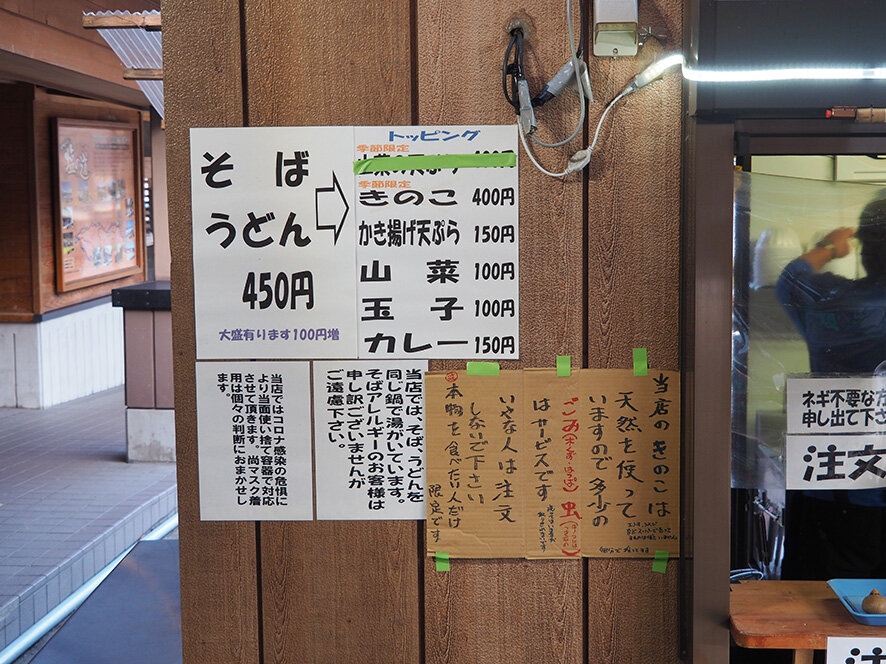 そば
うどん
450円
大盛有ります100円増
トッピング
季節限定
山菜の天ぷら
季節限定
きのこ 400円
かき揚げ天ぷら 150円
山菜 100円
玉子 100円
カレー 150円
当店ではコロナ感染の危惧に
より当面使い捨て容器で対応
させて頂きます。尚マスク着
用は個々の判断におまかせし
ます。
当店では、そば、うどんを
同じ鍋で湯がいています。
そばアレルギーのお客様は
申し訳ございませんが
ご遠慮下さい。
当店のきのこは
天然を使って
いますので多少の
ごみ 虫
はサービスです
いやな人は注文
しないで下さい
本物を食べたい人だけ
限定です
ネギ不要な方
申し出て下さ
注文